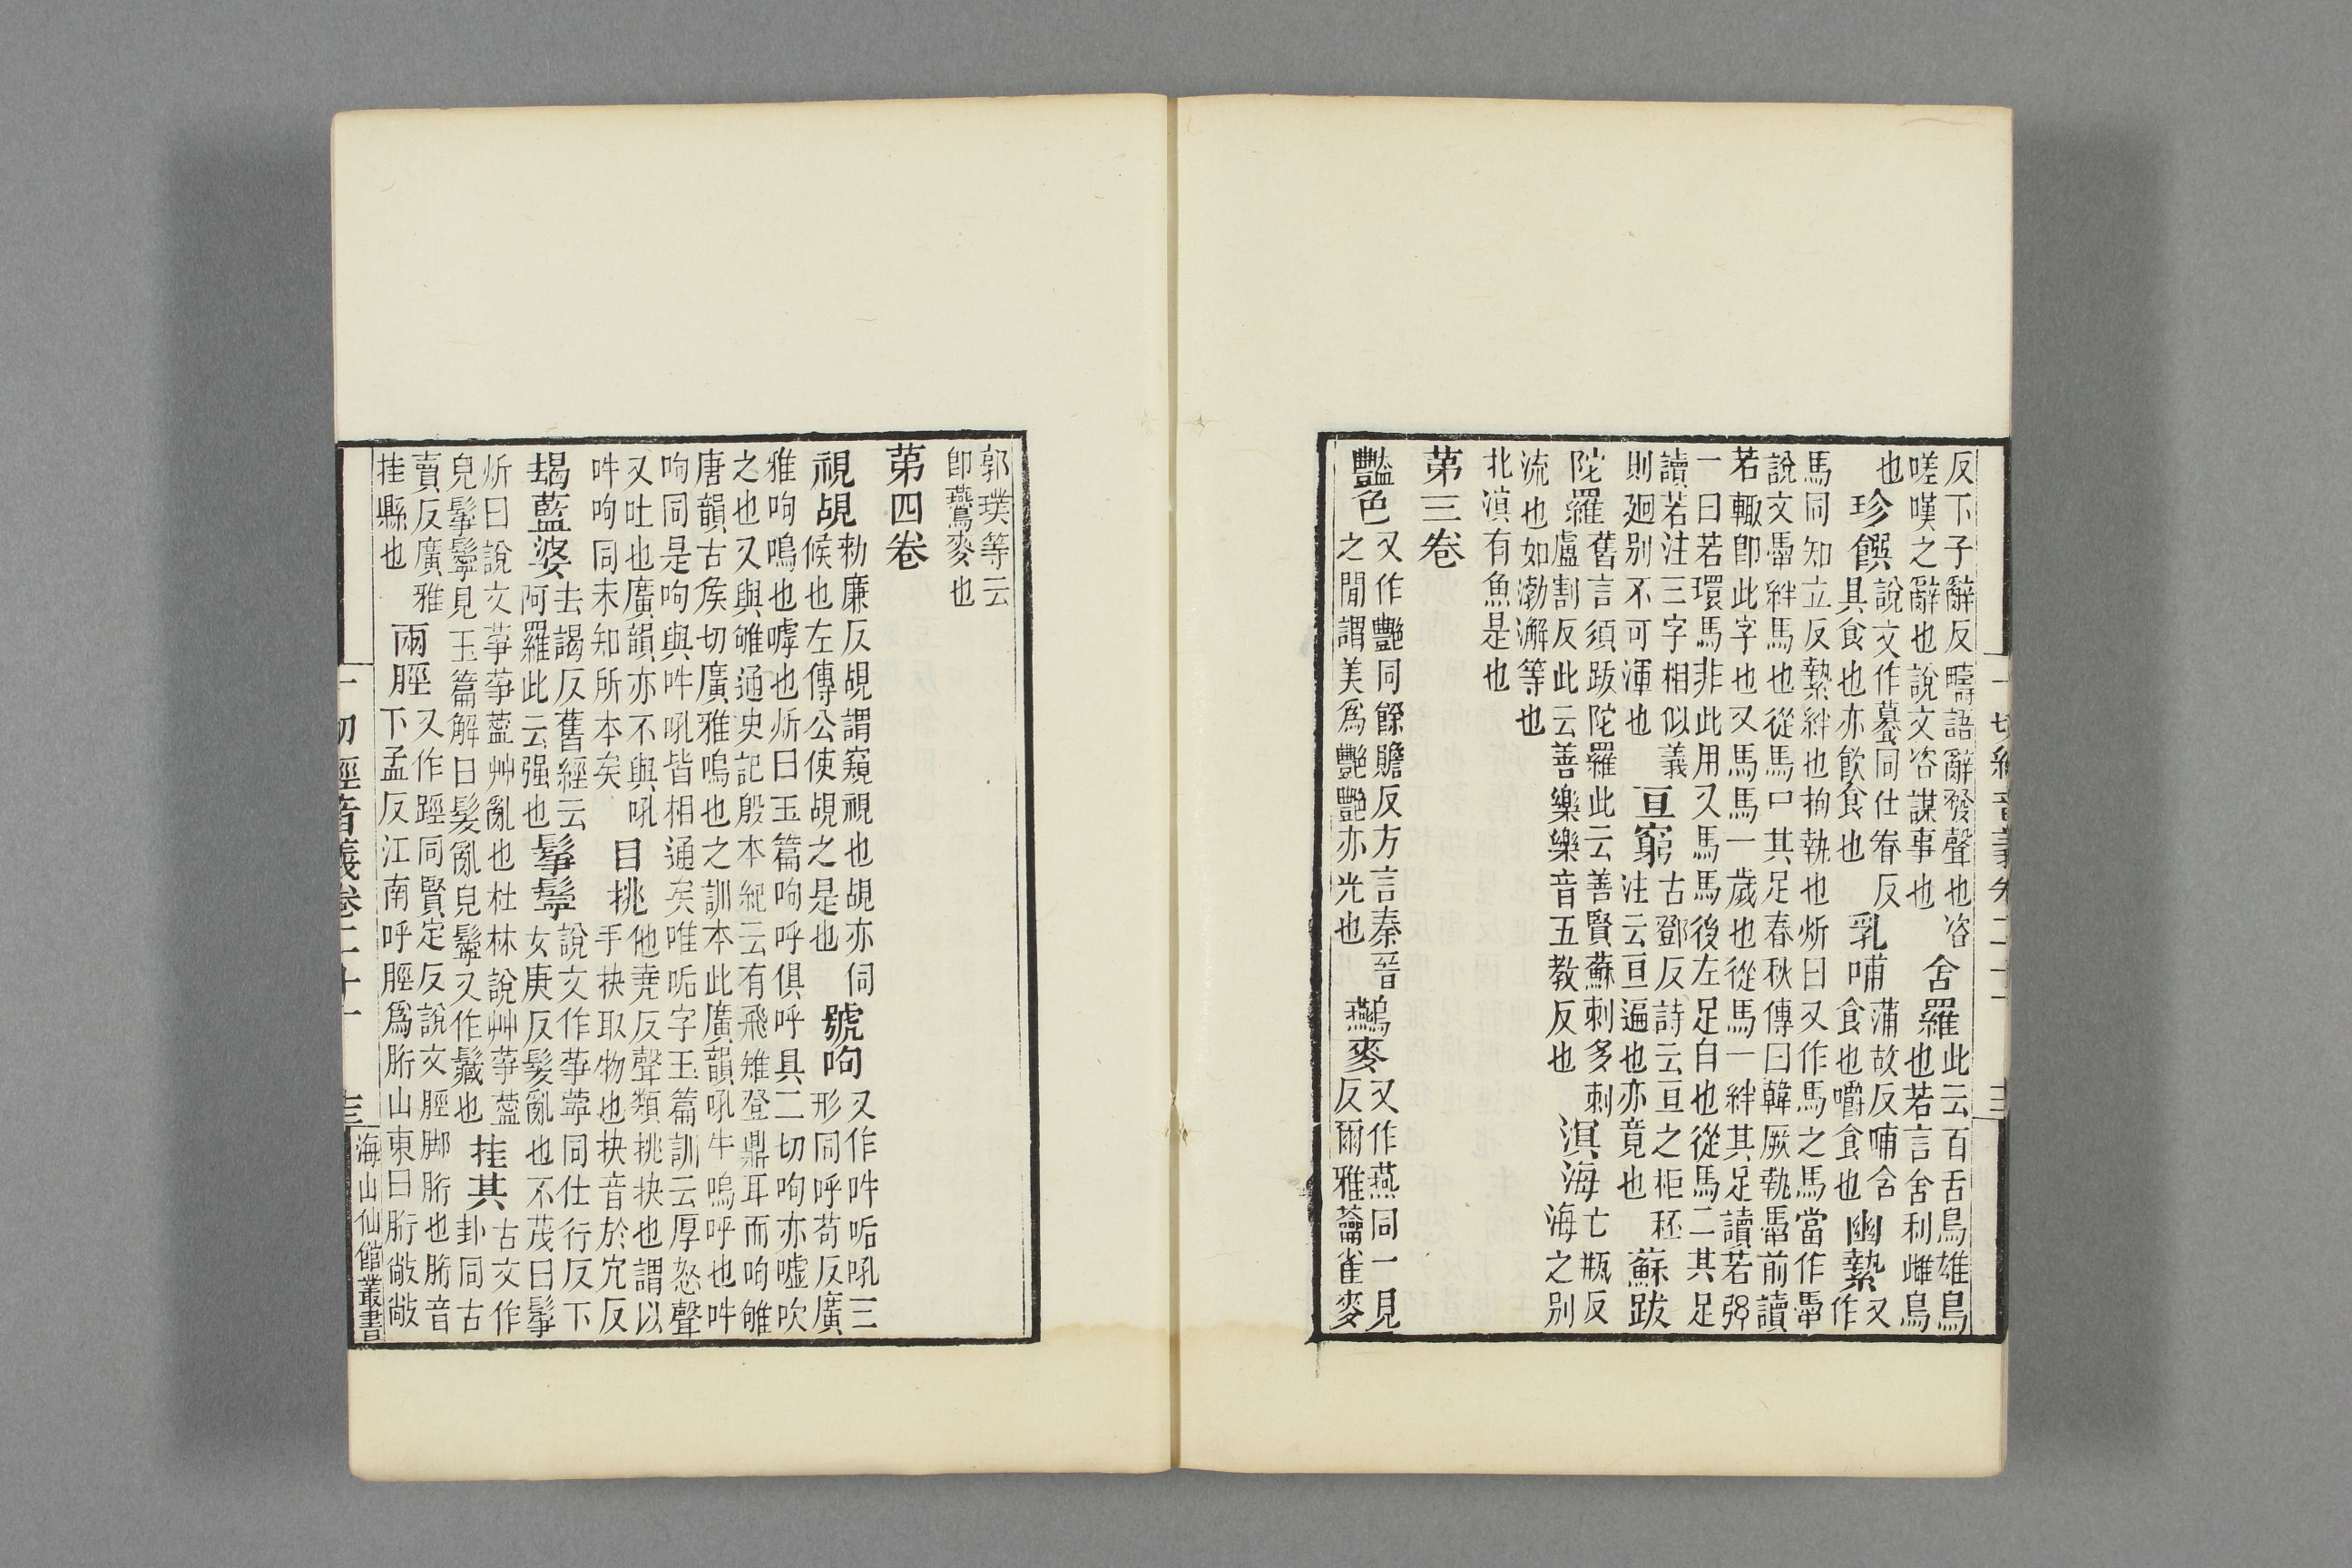 反下子辭反疇語辭發聲也咨
嗟嘆之辭也說文咨謀事也
舍羅
此云百舌鳥雄鳥
也若言舍利雌鳥
也
珍饌
說文作籑同仕眷反
具食也亦飲食也
乳哺
蒲故反哺含
食也嚼食也
幽縶
又
作
馬同知立反縶絆也拘執也炘曰又作馬之馬當作馽
說文馽絆馬也從馬口其足春秋傳曰韓厥執馽前讀
若輙卽此字也又馬馬一歲也從馬一絆其足讀若弦
一曰若環馬非此用又馬馬後左足白也從馬二其足
讀若注三字相似義
則廻别不可渾也
亘窮
古鄧反詩云亘之柜秠
注云亘遍也亦竟也
蘇跋
陀羅
舊言須跋陀羅此云善賢蘇刺多刺
盧割反此云善樂樂音五教反也
溟海
亡瓶反
海之别
流也如渤澥等也
北溟有魚是也
第三卷
豔色
又作艷同餘贍反方言秦晉
之閒謂美爲艷艷亦光也
鷰麥
又作燕同一見
反爾雅蘥雀麥
一切經音義卷二十一
郭璞等云
卽燕麥也
第四卷
視覘
勑廉反覘謂窺視也覘亦伺
候也左傳公使覘之是也
號呴
又作吽呃吼三
形同呼苟反廣
雅呴鳴也嘑也炘曰玉篇呴呼俱呼具二切呴亦嘘吹
之也又與雊通史記殷本紀云有飛雉登鼎耳而呴雊
唐韻古矦切廣雅鳴也之訓本此廣韻吼牛鳴呼也吽
呴同是呴與吽吼皆相通矣唯㖃字玉篇訓云厚怒聲
又吐也廣韻亦不與吼
吽呴同未知所本矣
目挑
他堯反聲類挑抉也謂以
手抉取物也抉音於穴反
蝎藍婆
去謁反舊經云
阿羅此云强也
鬇鬡
說文作䓝薴同仕行反下
女庚反髮亂也不茂曰鬇
炘曰說文䓝䓝薴艸亂也杜林說艸䓝薴
皃鬇鬡見玉篇解曰髮亂皃鬡又作鬤也
挂其
古文作
卦同古
賣反廣雅
挂縣也
兩脛
又作踁同賢定反說文脛脚胻也胻音
下孟反江南呼脛爲胻山東曰胻敞敞
一切經音義卷二十一
海山仙館叢書